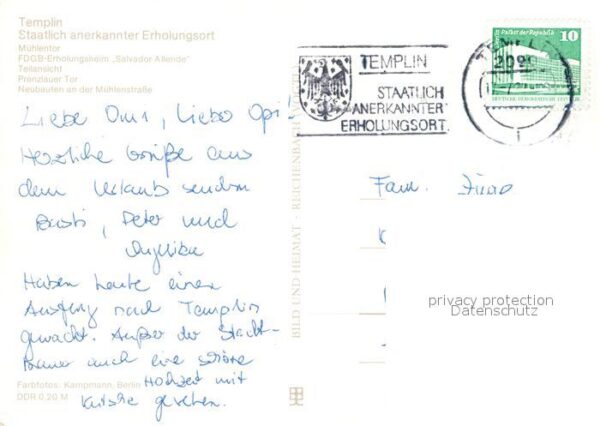 Templin
Staatlich anerkannter Erholungsort
Mühlentor
FDGB-Erholungsheim „Salvador Allende"
Teilansicht
Prenzlauer Tor
Neubauten an der Mühlenstraße
Liebe Omi, Liebe Opi!
Herzliche Grüße aus
dem Urlaub senden
Peter und
Angelika
Haben heute einen
Ausflug nach Templin
gemacht. Außer der Stadt-
mauer auch eine schöne
Hochzeit mit
Kutsche gesehen.
Farbfotos: Kampmann, Berlin
DDR 0,20 M
BILD UND HEIMAT · REICHENBACH
TEMPLIN
STAATLICH
ANERKANNTER
ERHOLUNGSORT
TEMPLIN
2090
Palast der Republik
10
DEUTSCHE DEMOKRATISCHE REPUBLIK
Fam.
privacy protection
Datenschutz